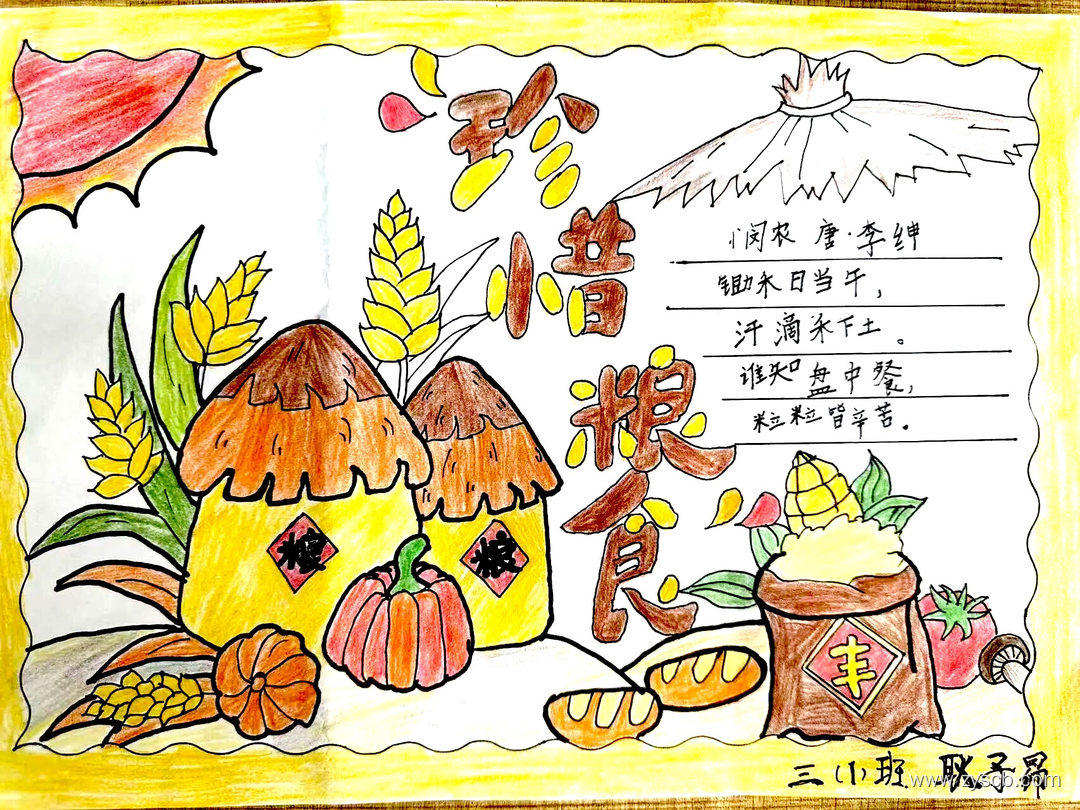 珍惜粮食
悯农 唐·李绅
锄禾日当午，
汗滴禾下土。
谁知盘中餐，
粒粒皆辛苦。
粮
粮
丰
三(1)班
www.zyscb.com